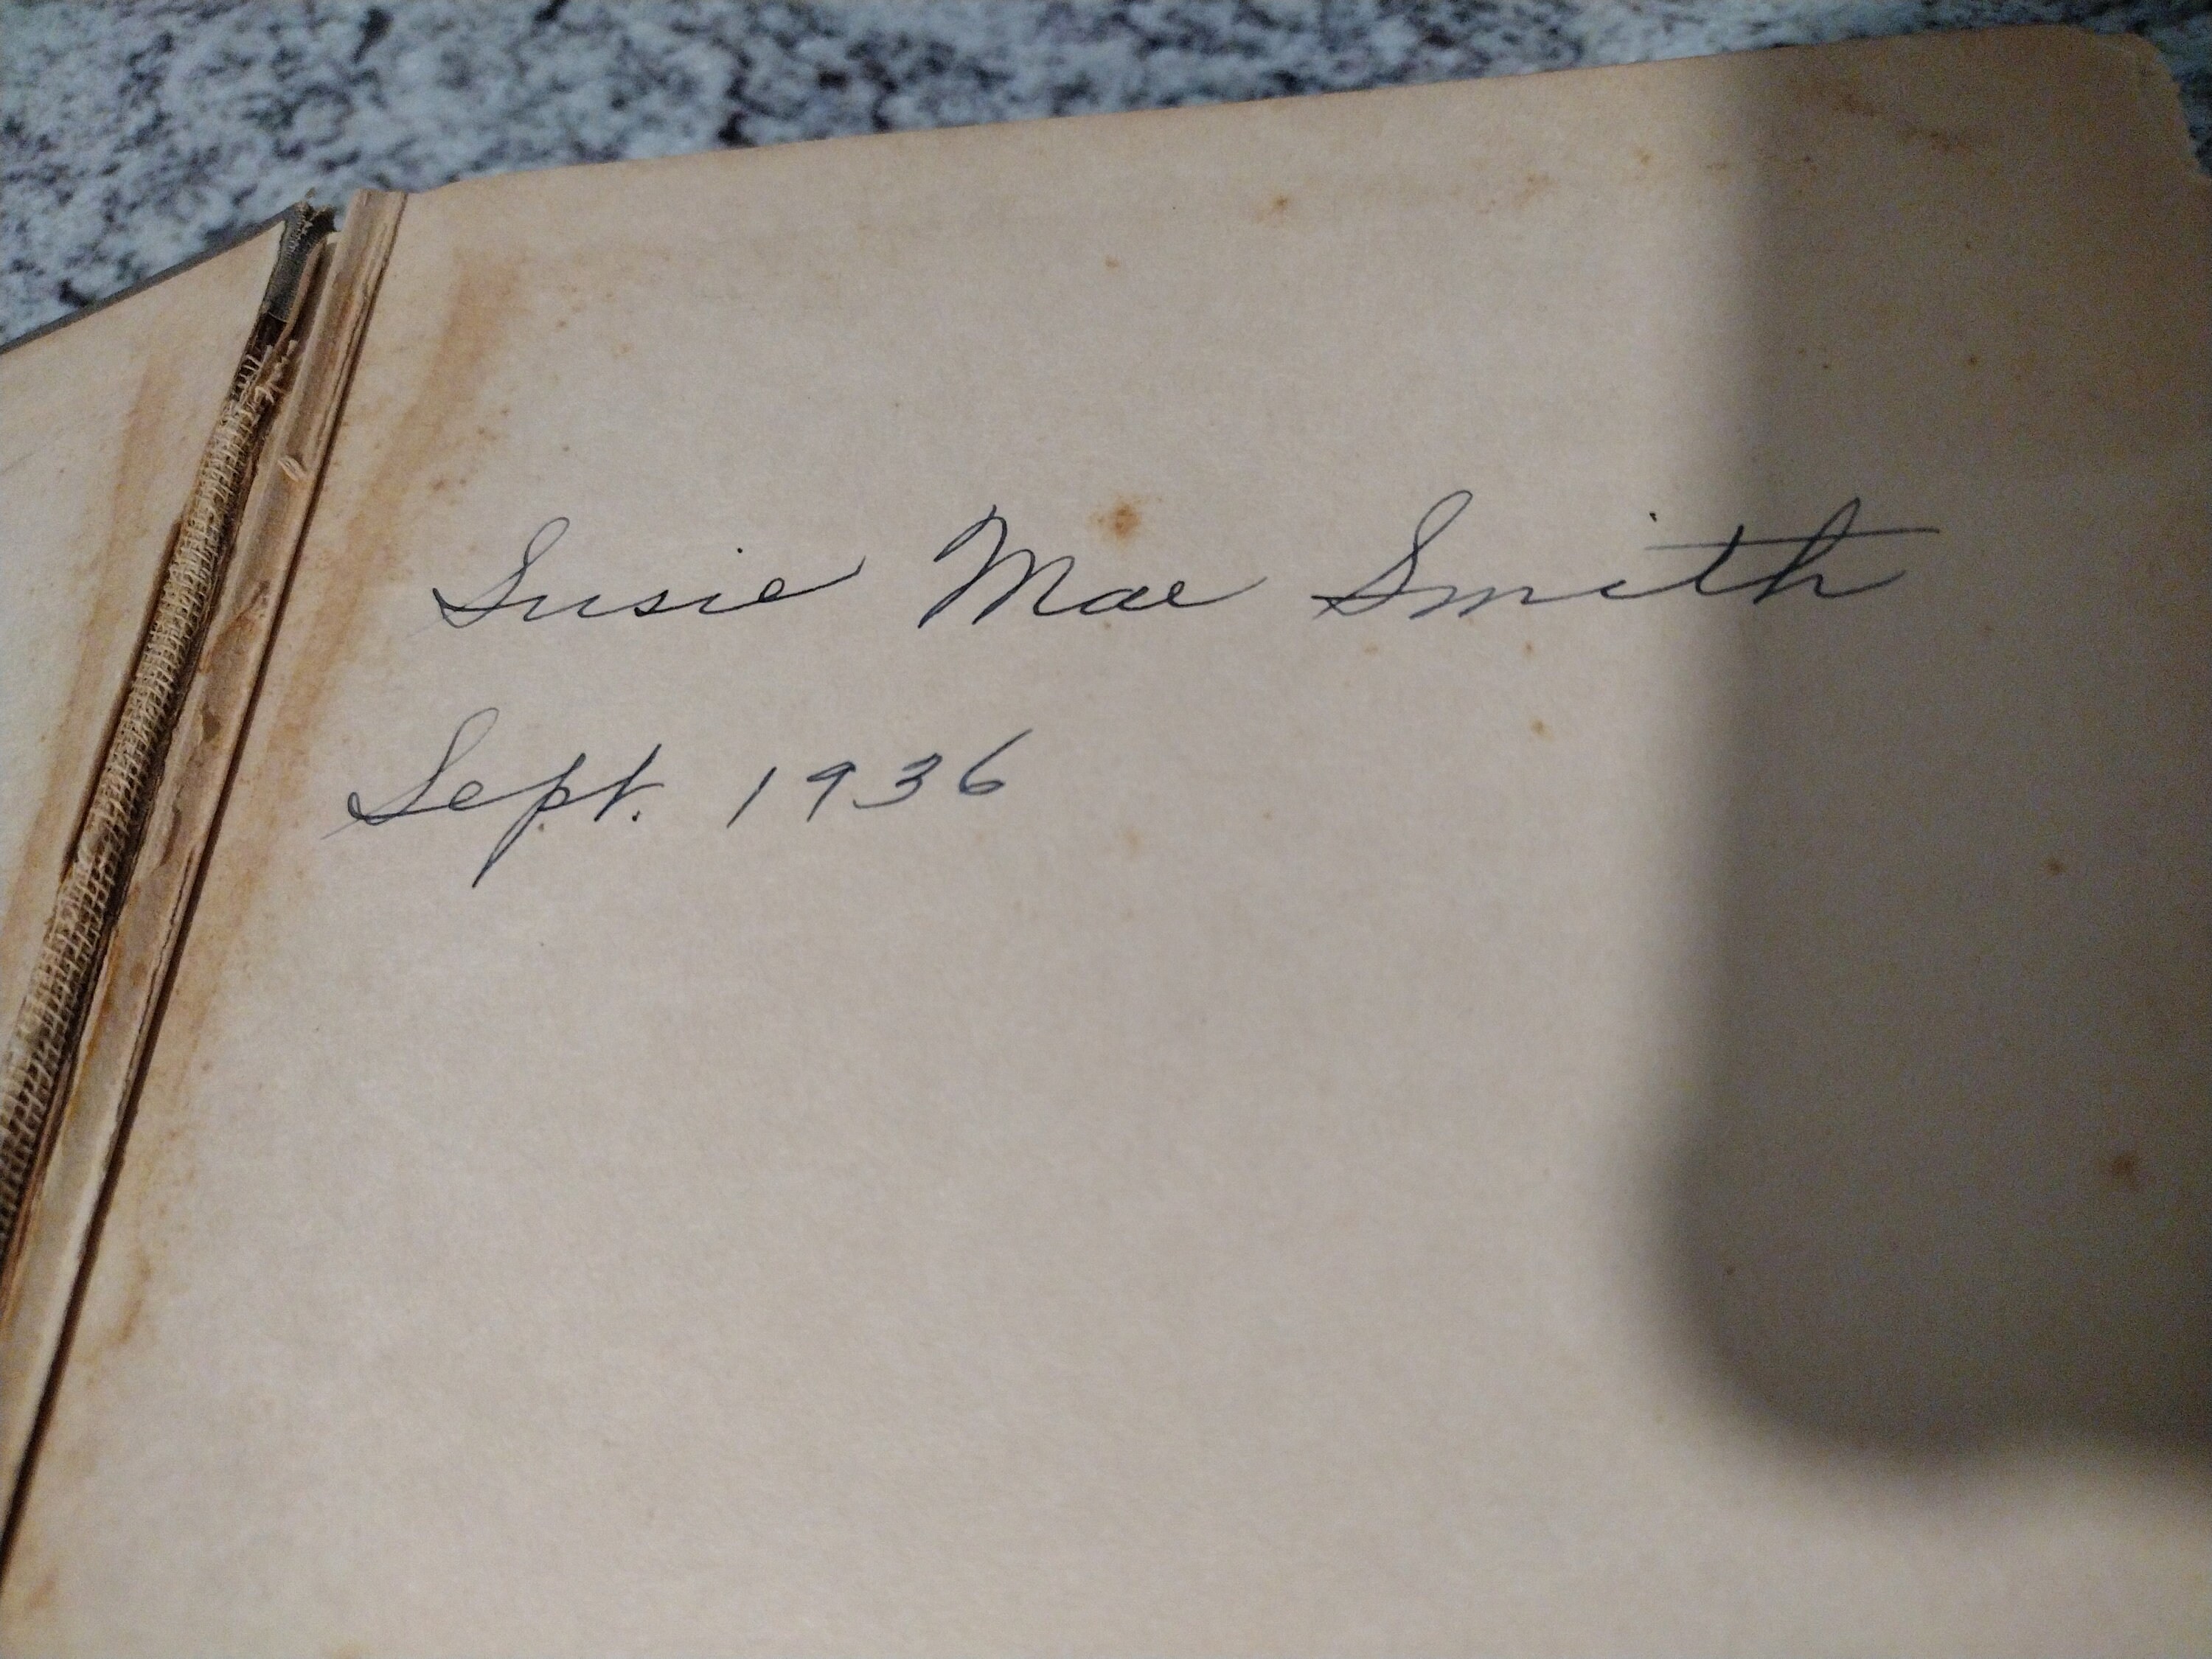 Susie Mae Smith
Sept. 1936